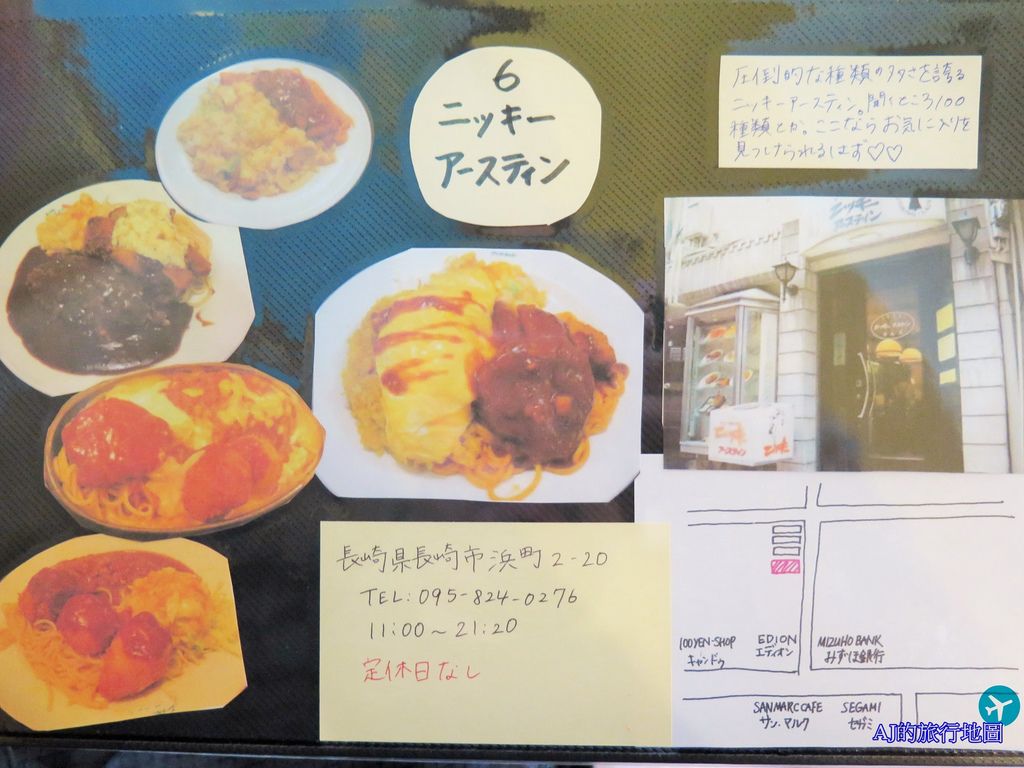 6
ニッキー
アースティン
圧倒的な種類の多さを誇る
ニッキーアースティン。聞くところ100
種類とか。ここならお気に入りを
見つけられるはず♡♡
ニッキー
アースティン
アースティン
長崎県長崎市浜町2-20
TEL: 095-824-0276
11:00～21:20
定休日なし
100YEN-SHOP
キャンドゥ
EDION
エディオン
MIZUHO BANK
みずほ銀行
SANMARC CAFE
サン・マルク
SEGAMI
セガミ
AJ的旅行地圖